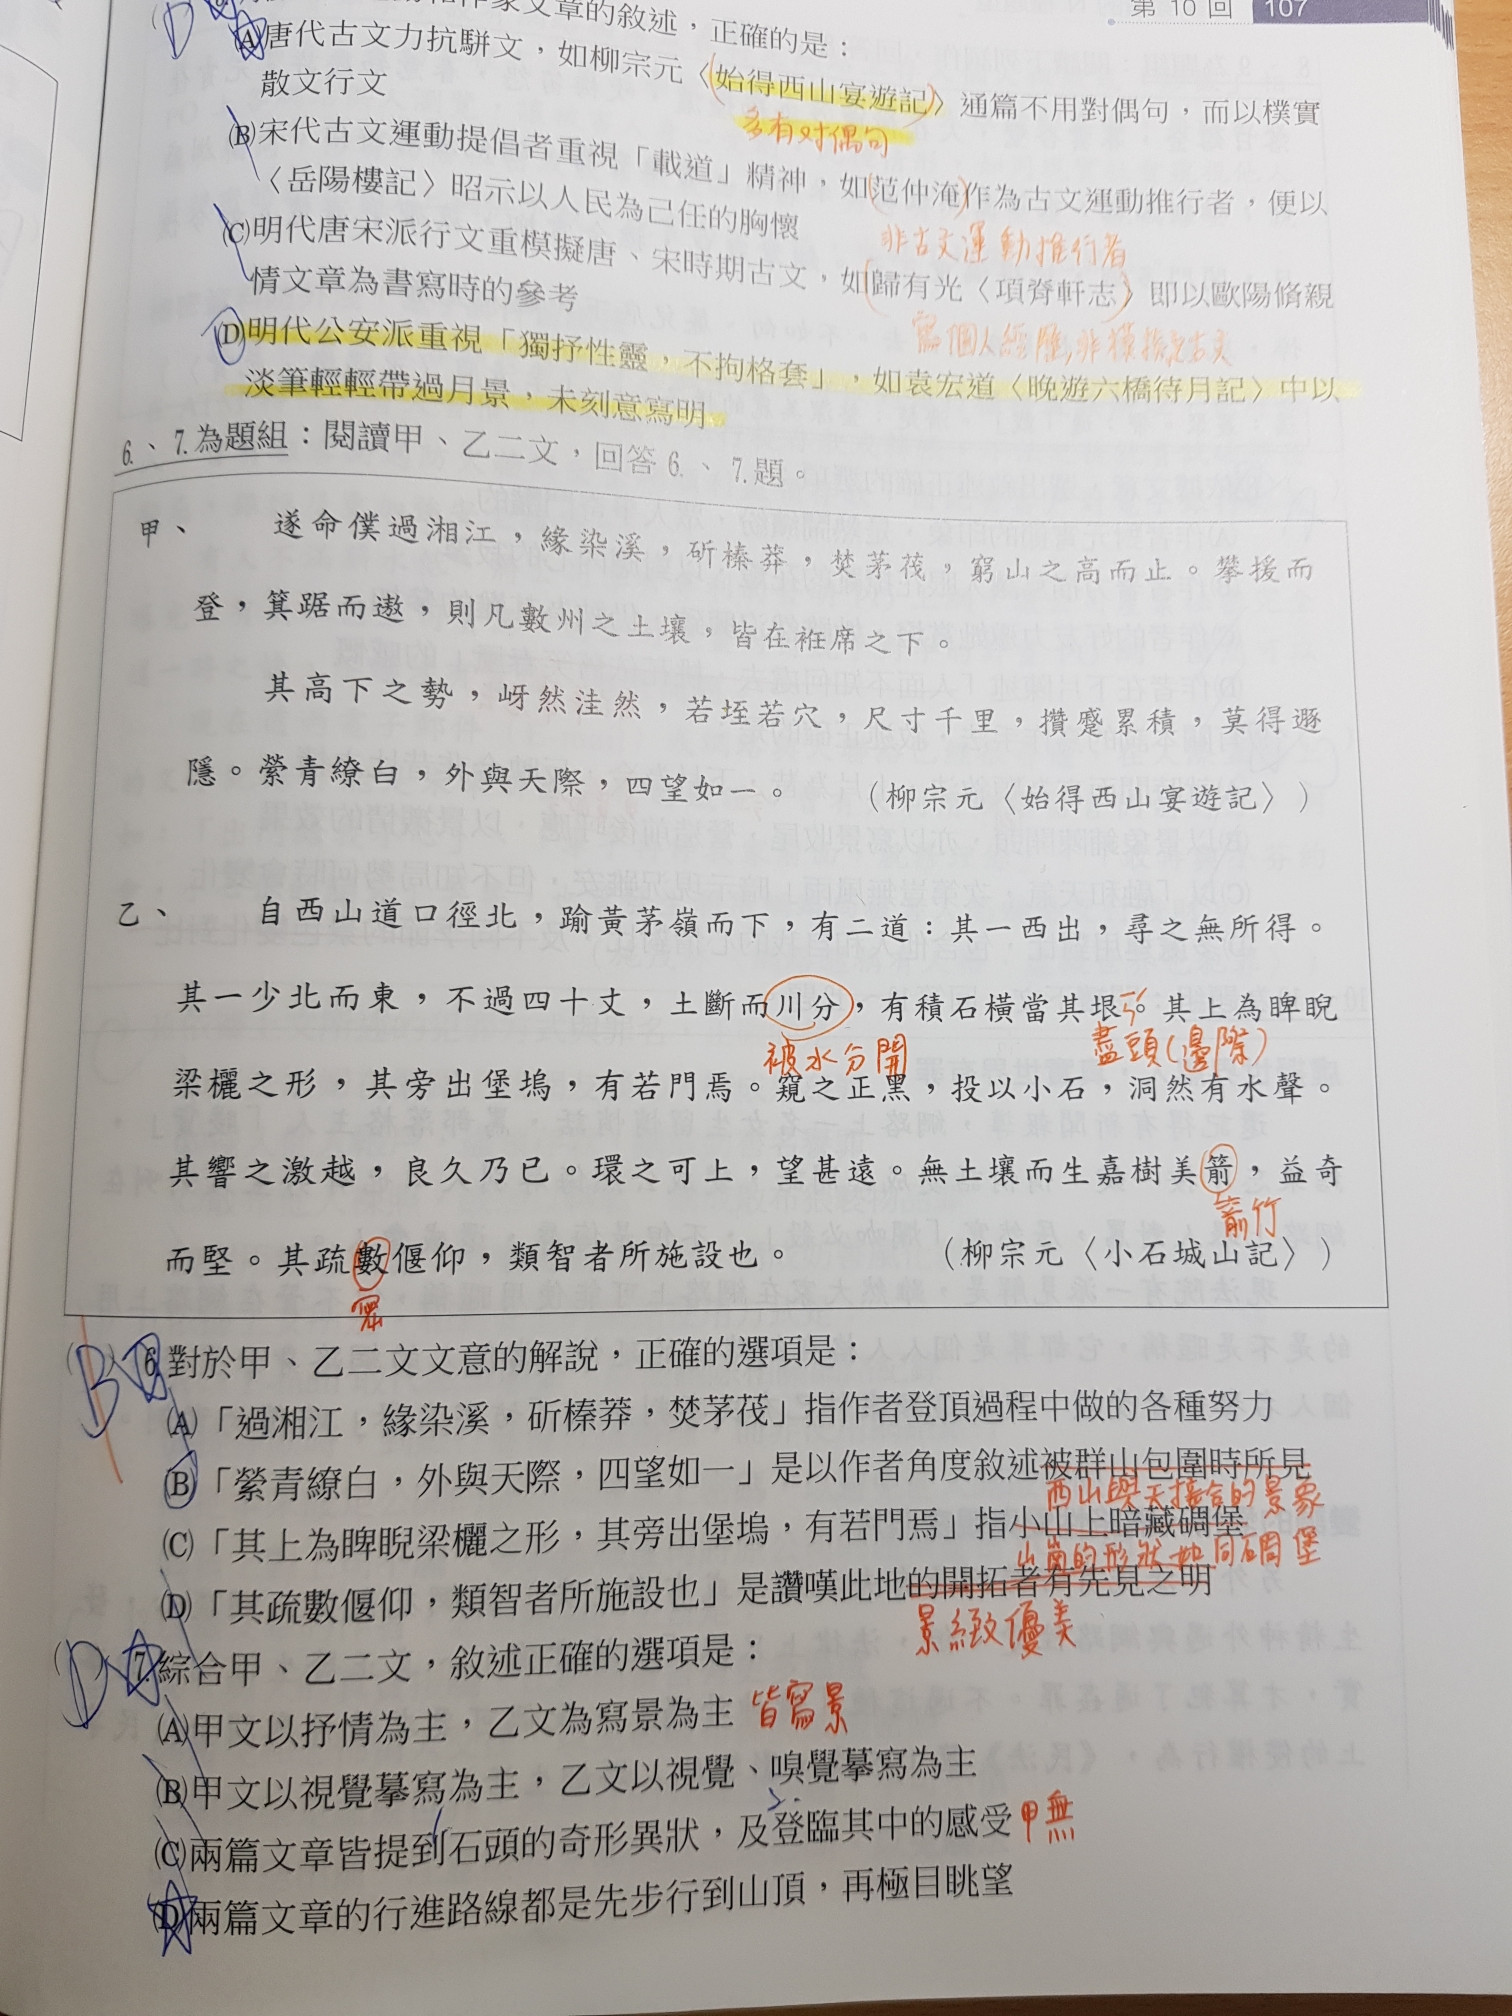 第 10 回 107
作家文章的敘述，正確的是：
(A)唐代古文力抗駢文，如柳宗元〈始得西山宴遊記〉通篇不用對偶句，而以樸實
散文行文
多有対偶句
(B)宋代古文運動提倡者重視「載道」精神，如范仲淹作為古文運動推行者，便以
〈岳陽樓記〉昭示以人民為己任的胸懷
非古文運動推行者
(C)明代唐宋派行文重模擬唐、宋時期古文，如歸有光〈項脊軒志〉即以歐陽脩親
情文章為書寫時的參考
寫個人經歷,非模擬
(D)明代公安派重視「獨抒性靈，不拘格套」，如袁宏道〈晚遊六橋待月記〉中以
淡筆輕輕帶過月景，未刻意寫明
6.、7.為題組：閱讀甲、乙二文，回答6.、7.題。
甲、 遂命僕過湘江，緣染溪，斫榛莽，焚茅茷，窮山之高而止。攀援而
登，箕踞而遨，則凡數州之土壤，皆在衽席之下。
其高下之勢，岈然洼然，若垤若穴，尺寸千里，攢蹙累積，莫得遯
隱。縈青繚白，外與天際，四望如一。 （柳宗元〈始得西山宴遊記〉）
乙、 自西山道口徑北，踰黃茅嶺而下，有二道：其一西出，尋之無所得。
其一少北而東，不過四十丈，土斷而川分，有積石橫當其垠。其上為睥睨
被水分開 盡頭(邊際)
梁欐之形，其旁出堡塢，有若門焉。窺之正黑，投以小石，洞然有水聲。
其響之激越，良久乃已。環之可上，望甚遠。無土壤而生嘉樹美箭，益奇
箭竹
而堅。其疏數偃仰，類智者所施設也。 （柳宗元〈小石城山記〉）
密
(B) 6.對於甲、乙二文文意的解說，正確的選項是：
(A)「過湘江，緣染溪，斫榛莽，焚茅茷」指作者登頂過程中做的各種努力
(B)「縈青繚白，外與天際，四望如一」是以作者角度敘述被群山包圍時所見
西山與天接合的景象
(C)「其上為睥睨梁欐之形，其旁出堡塢，有若門焉」指小山上暗藏碉堡
山崗的形狀如同碉堡
(D)「其疏數偃仰，類智者所施設也」是讚嘆此地的開拓者有先見之明
景緻優美
(D) 7.綜合甲、乙二文，敘述正確的選項是：
(A)甲文以抒情為主，乙文為寫景為主 皆寫景
(B)甲文以視覺摹寫為主，乙文以視覺、嗅覺摹寫為主
(C)兩篇文章皆提到石頭的奇形異狀，及登臨其中的感受 甲無
(D)兩篇文章的行進路線都是先步行到山頂，再極目眺望